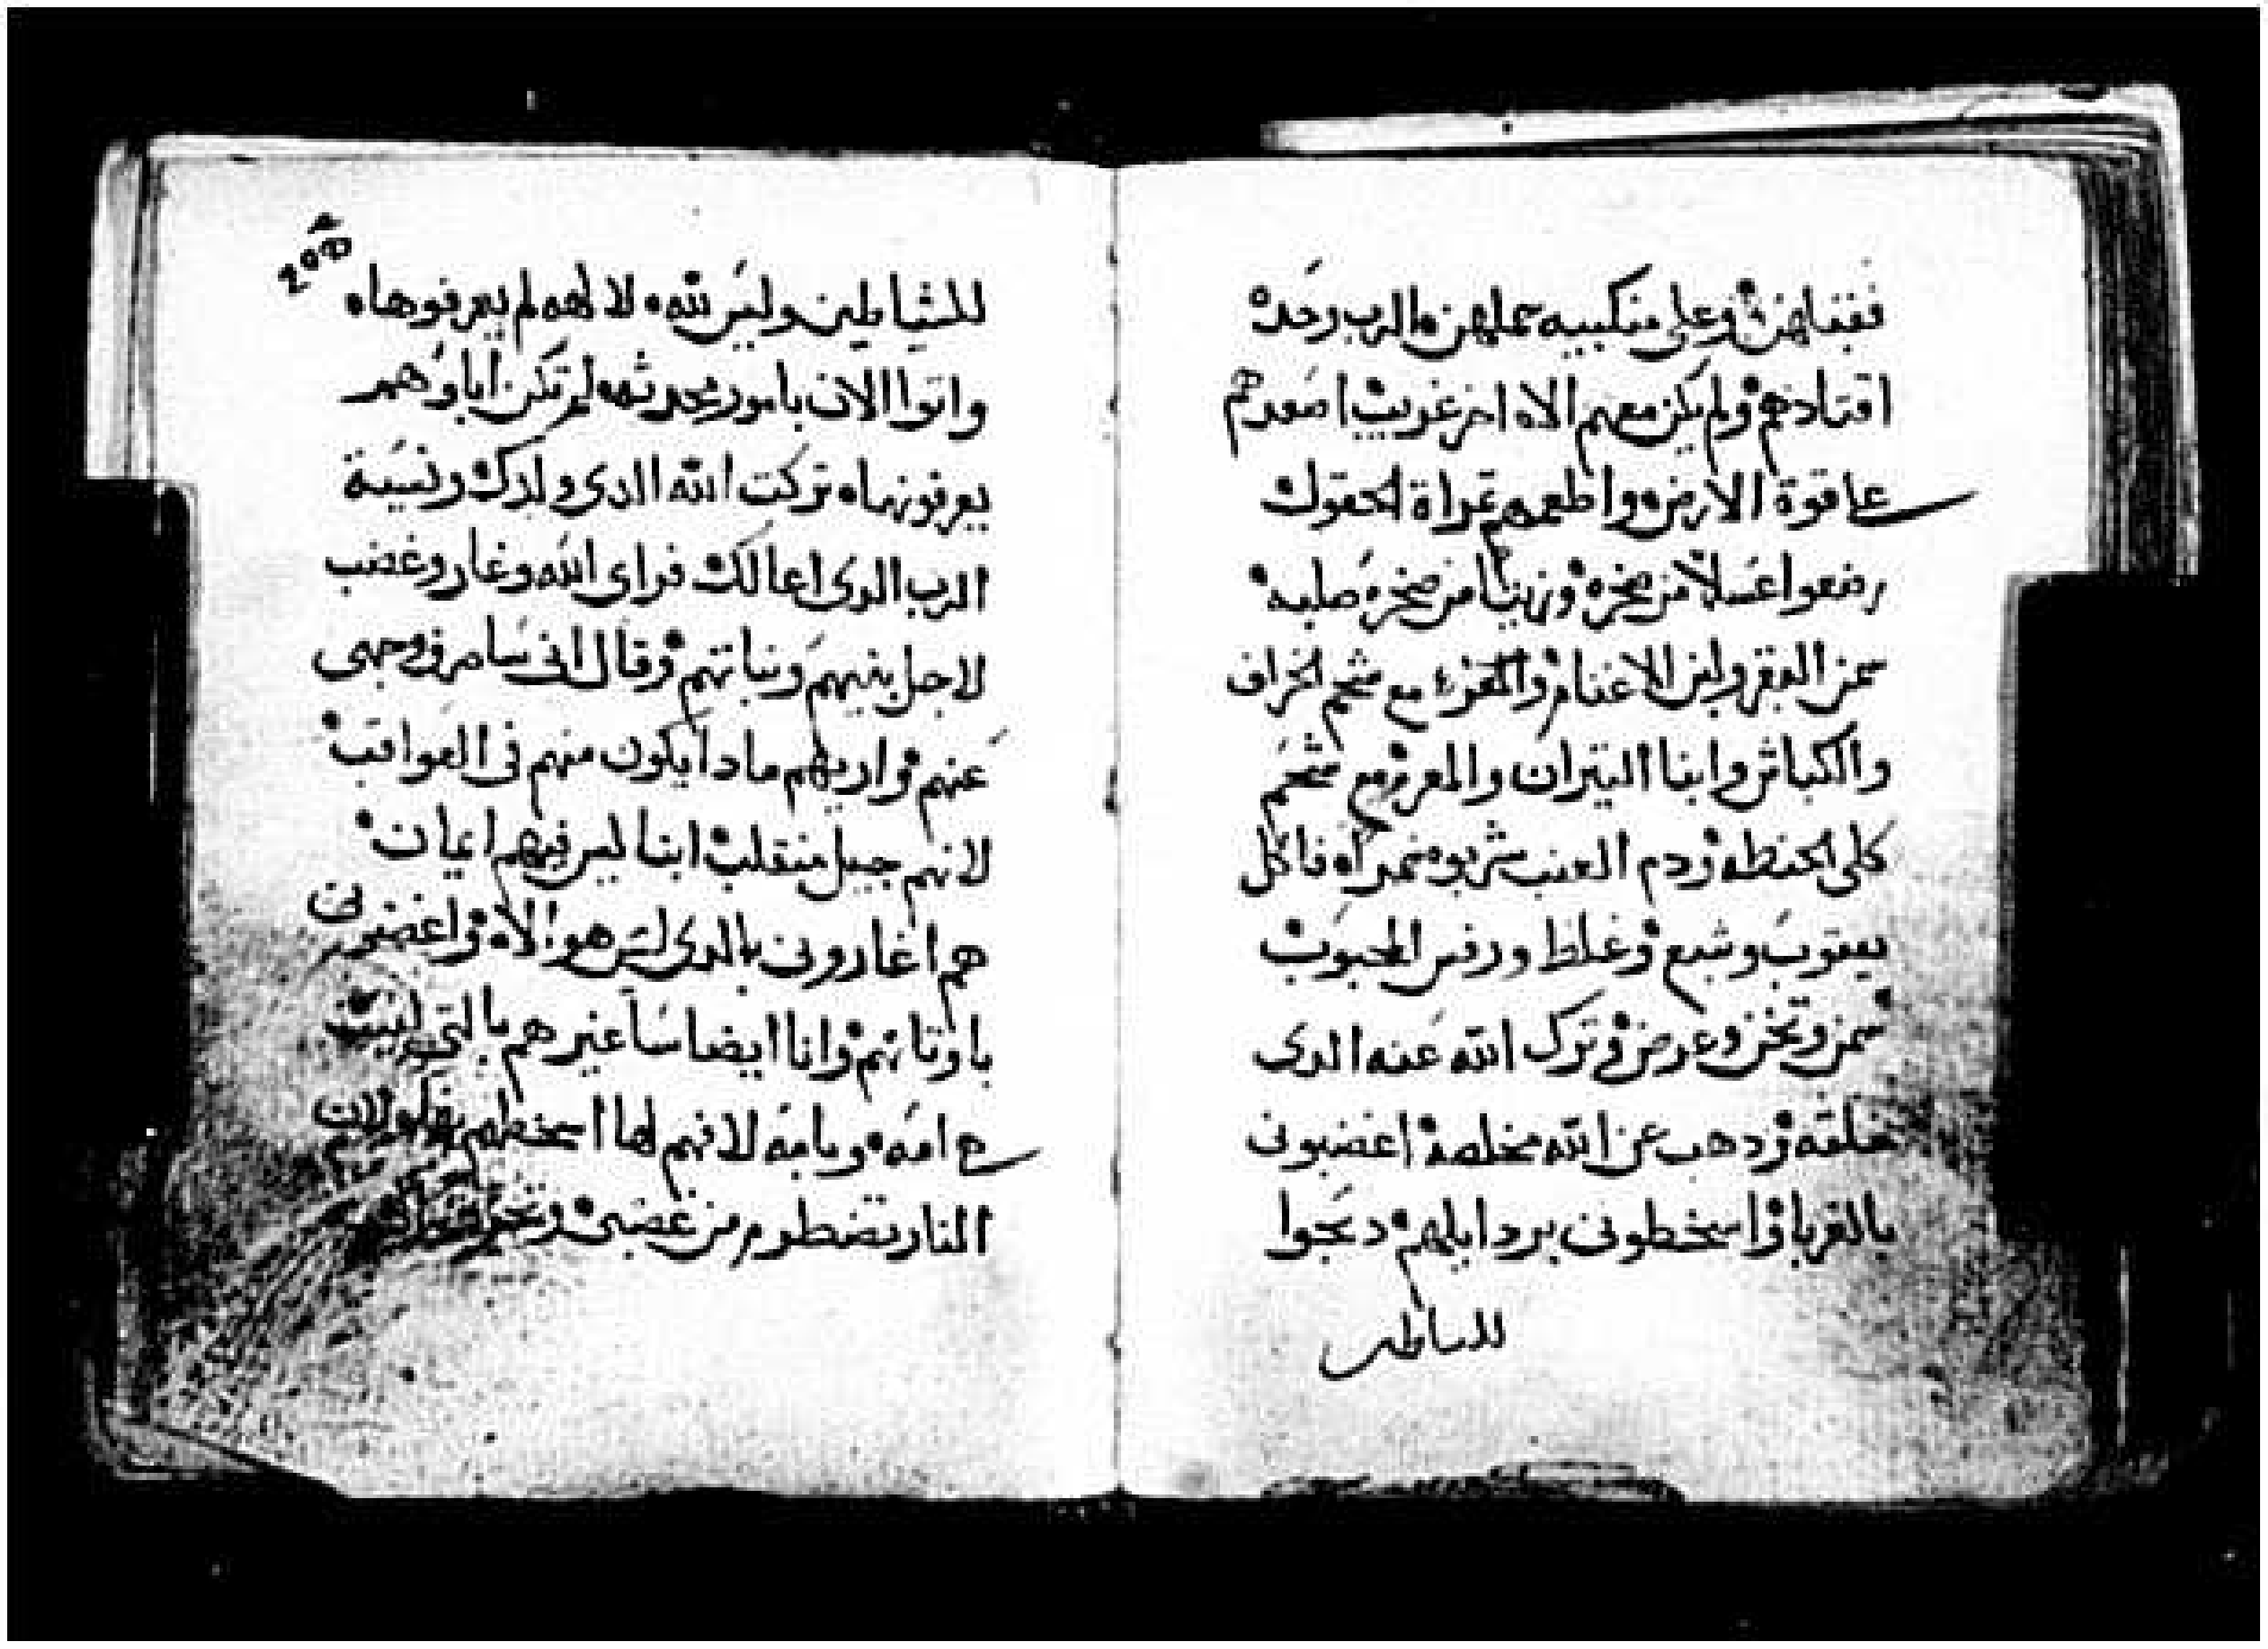 فقبلهن وعلى منكبيه حملهن الرب وحده
اقتادهم ولم يكن معهم الاه اخر غريب اصعدهم
على قوة الارض واطعمهم ثمراة الحقول
رضعوا عسلا من صخره وزيتا من صخره صلبه
سمن البقر ولبن الاغنام والمعزه مع شحم الخراف
والكباش وابنا التيران والمعز مع شحم
كلى الحنطه ودم العنب شربوه خمراه فاكل
يعقوب وشبع وغلظ ورفس المحبوب
سمن وتخن وعرض وترك الله عنه الدى
خلقه ودهب عن الله مخلصه اغضبونى
بالغربا واسخطونى بردايلهم دبحوا
للشياطين
للشياطين وليس لله لالهه لم يعرفوها
واتوا الان بامور محدثه لم تكن اباوهم
يعرفونها تركت الله الدى ولدك ونسية
الرب الدى اعالك فراى الله وغار وغضب
لاجل بنيهم وبناتهم وقال انى ساصرف وجهى
عنهم واريهم مادا يكون منهم فى العواقب
لانهم جيل منقلب ابنا ليس فيهم ايمان
هم اغارونى بالدى ليس هو الاه واغضبونى
باوتانهم وانا ايضا ساغيرهم بالتى ليست
امه وبامه لا فهم لها اسخطهم لان
النار تضطرم من غضبى وتحرق